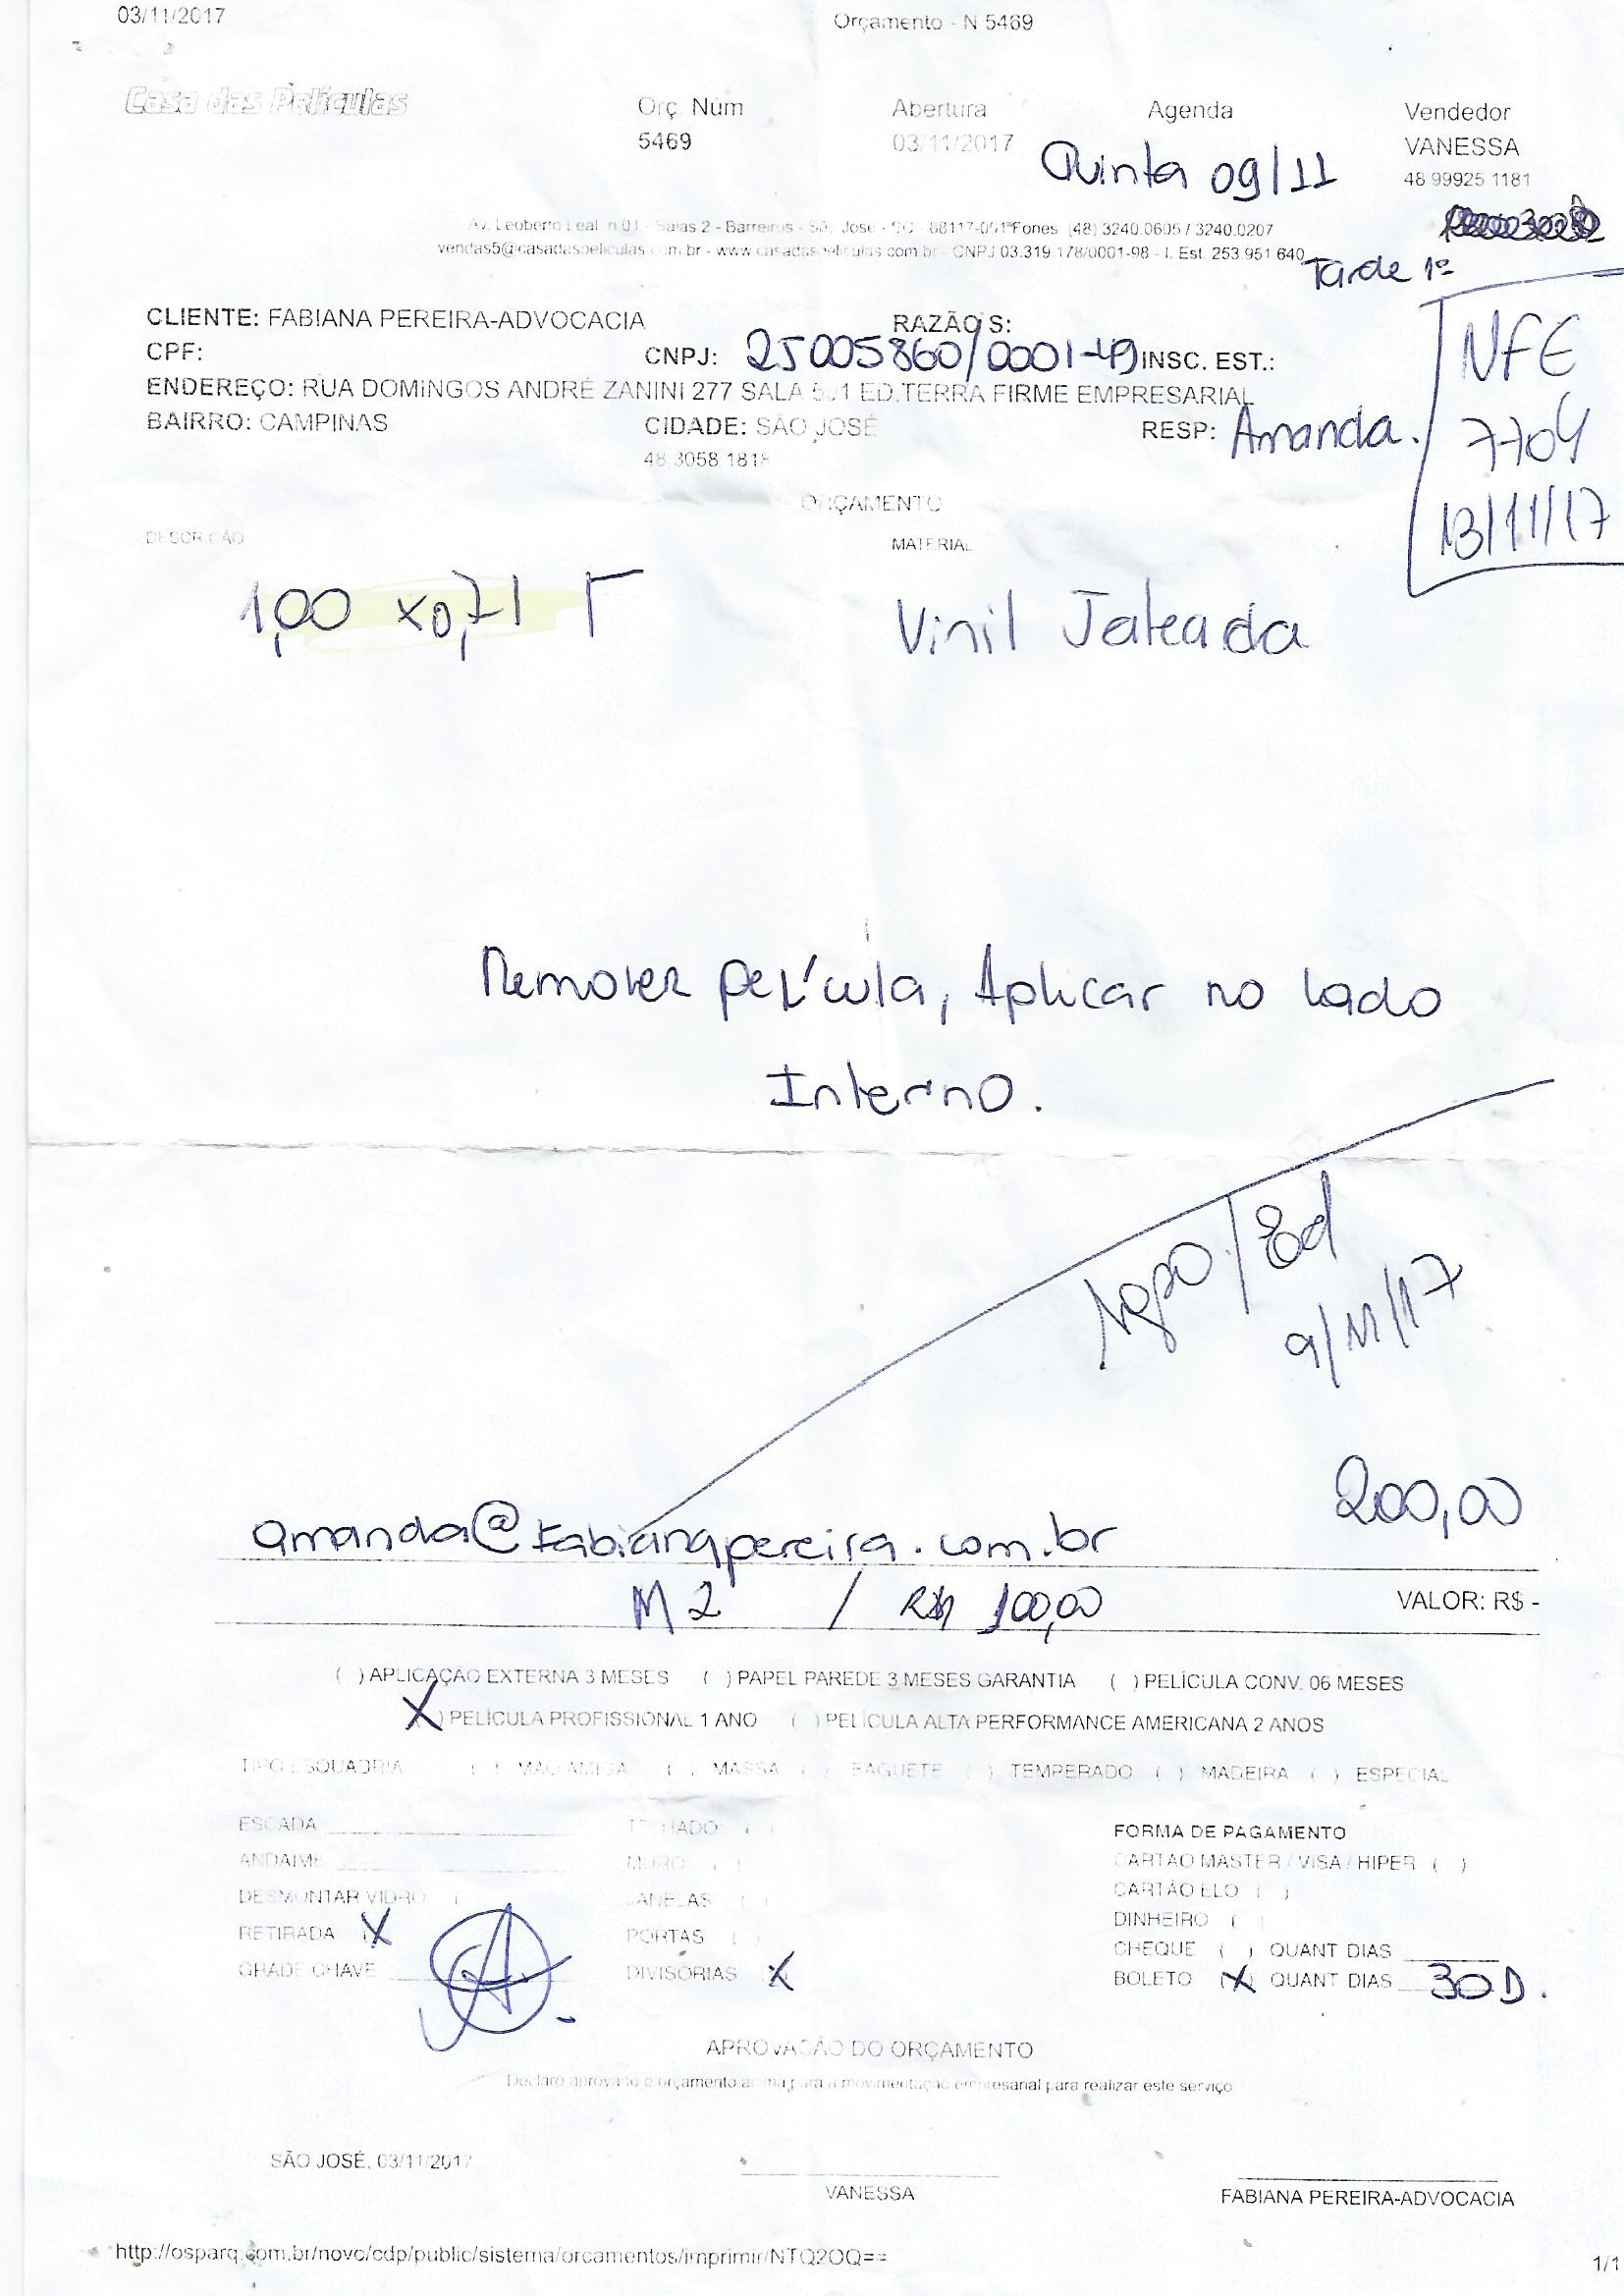 03/11/2017 Orçamento - N 5469
Casa das Películas Orç Núm Abertura Agenda Vendedor
5469 03/11/2017 Quinta 09/11 VANESSA
48 99925 1181
Av. Leoberto Leal, n 01 - Salas 2 - Barreiros - São José - SC - 88117-001 Fones (48) 3240.0605 / 3240.0207
vendas5@casadaspeliculas.com.br - www.casadaspeliculas.com.br - CNPJ 03.319.178/0001-98 - I. Est. 253.951.640
Tarde 1ª
CLIENTE: FABIANA PEREIRA-ADVOCACIA RAZÃO S:
CPF: CNPJ: 25005860/0001-49 INSC. EST.:
NFE
ENDEREÇO: RUA DOMINGOS ANDRÉ ZANINI 277 SALA 501 ED.TERRA FIRME EMPRESARIAL
BAIRRO: CAMPINAS CIDADE: SÃO JOSÉ RESP: Amanda.
7704
48 3058 1818
13/11/17
ORÇAMENTO
DESCRIÇÃO MATERIAL
1,00 x0,71 Vinil Jateada
Remover película, Aplicar no lado
Interno.
/Ed
9/11/17
200,00
amanda@fabianapereira.com.br
M 2 / R$ 100,00 VALOR: R$ -
( ) APLICAÇÃO EXTERNA 3 MESES ( ) PAPEL PAREDE 3 MESES GARANTIA ( ) PELÍCULA CONV. 06 MESES
X ) PELÍCULA PROFISSIONAL 1 ANO ( ) PELÍCULA ALTA PERFORMANCE AMERICANA 2 ANOS
TIPO ESQUADRIA ( ) MÃO AMIGA ( ) MASSA ( ) BAGUETE ( ) TEMPERADO ( ) MADEIRA ( ) ESPECIAL
ESCADA TELHADO ( ) FORMA DE PAGAMENTO
ANDAIME MURO ( ) CARTÃO MASTER / VISA / HIPER ( )
DESMONTAR VIDRO ( JANELAS ( ) CARTÃO ELO ( )
RETIRADA (X PORTAS ( ) DINHEIRO ( )
GRADE CHAVE DIVISÓRIAS (X CHEQUE ( ) QUANT DIAS
BOLETO (X) QUANT DIAS 30D.
APROVAÇÃO DO ORÇAMENTO
Declaro aprovado o orçamento acima para a movimentação empresarial para realizar este serviço
SÃO JOSÉ, 03/11/2017
VANESSA FABIANA PEREIRA-ADVOCACIA
http://osparq.com.br/novo/cdp/public/sistema/orcamentos/imprimir/NTQ2OQ== 1/1